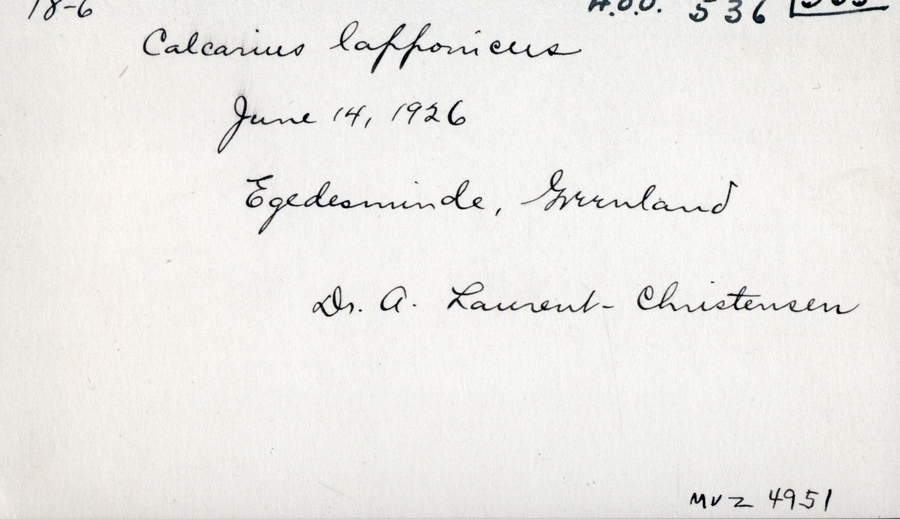 18-6 A.O.U. 536
Calcarius lapponicus
June 14, 1926
Egedesminde, Greenland
Dr. A. Laurent-Christensen
MVZ 4951